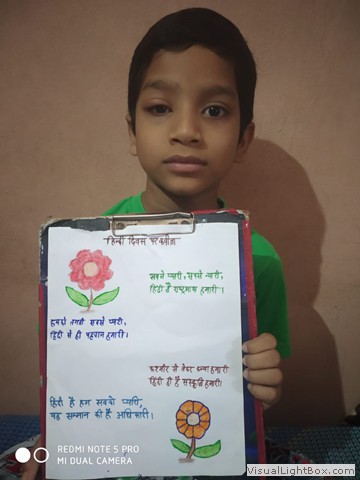 हिन्दी दिवस पर कविता
सबसे प्यारी, सबसे न्यारी,
हिंदी है राष्ट्रभाषा हमारी।
हमको लगती सबसे प्यारी,
हिंदी से ही पहचान हमारी।
कश्मीर से लेकर कन्याकुमारी
हिंदी ही है संस्कृति हमारी।
हिंदी है हम सबको प्यारी,
यह सम्मान की है अधिकारी।
REDMI NOTE 5 PRO
MI DUAL CAMERA
VisualLightBox.com